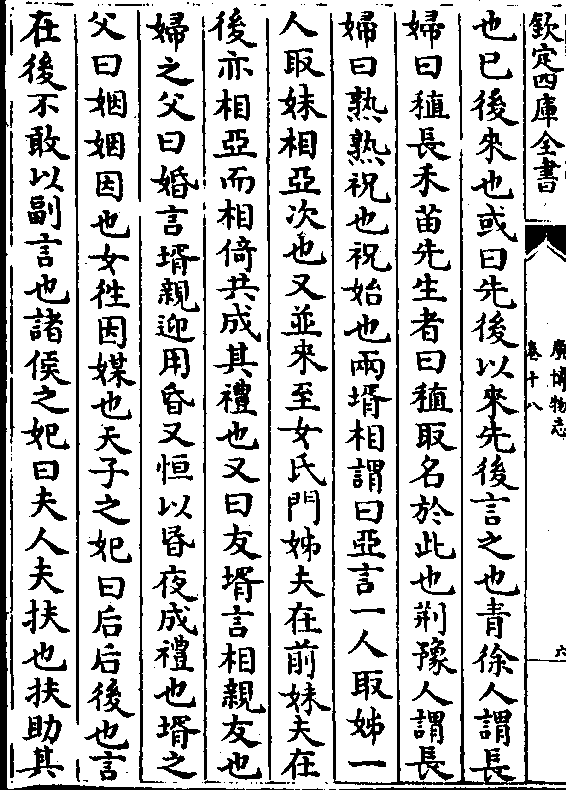 欽定四庫全書
廣博物志
卷十八
六
也已後來也或曰先後以來先後言之也青徐人謂長
婦曰稙長禾苗先生者曰稙取名於此也荆豫人謂長
婦曰熟熟祝也祝始也兩壻相謂曰亞言一人取姊一
人取妹相亞次也又並來至女氏門姊夫在前妹夫在
後亦相亞而相倚共成其禮也又曰友壻言相親友也
婦之父曰婚言壻親迎用昏又恒以昏夜成禮也壻之
父曰姻姻因也女徃因媒也天子之妃曰后后後也言
在後不敢以副言也諸侯之妃曰夫人夫扶也扶助其